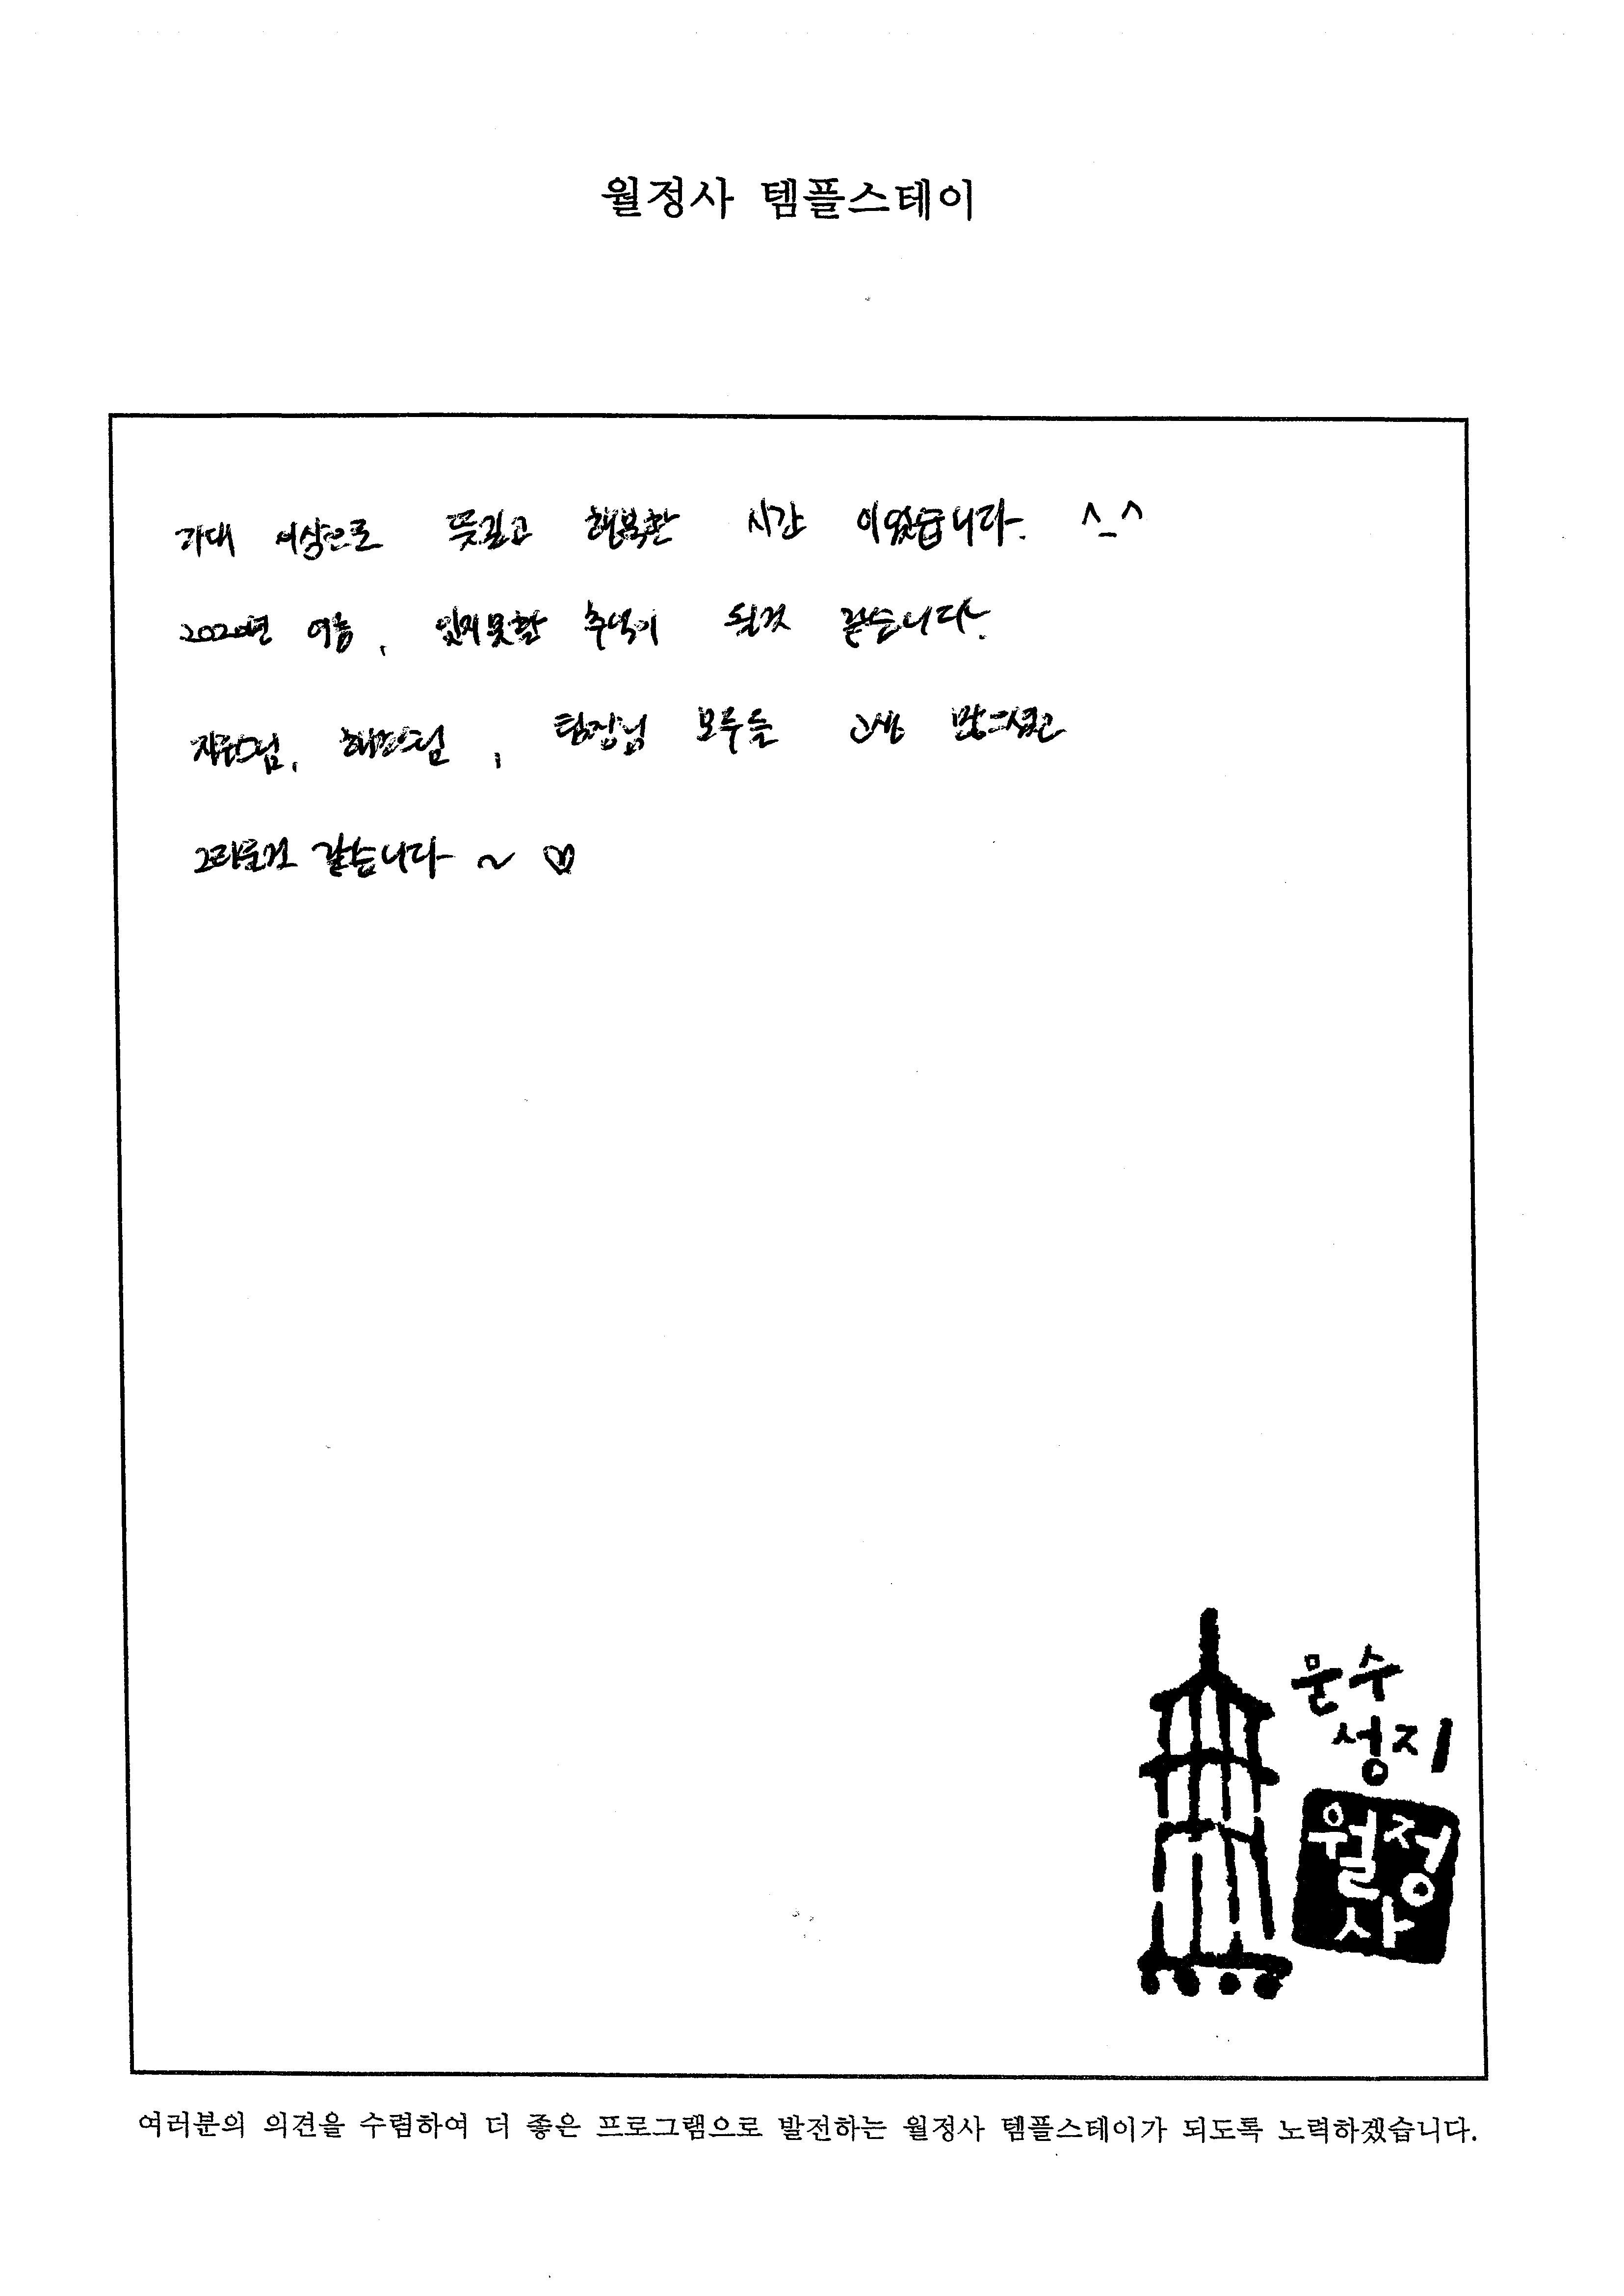 월정사 템플스테이
기대 이상으로 뜻깊고 행복한 시간 이었습니다. ^_^
2020년 여름, 잊지못할 추억이 될것 같습니다.
팀장님 모두들 고생 많으셨고
그리울것 같습니다 ~ ♡
문수
성지
월정
사
여러분의 의견을 수렴하여 더 좋은 프로그램으로 발전하는 월정사 템플스테이가 되도록 노력하겠습니다.